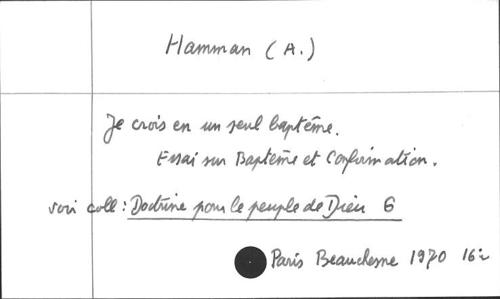 Hamman (A.)
Je crois en un seul baptême.
Essai sur Baptême et Confirmation.
voir coll : Doctrine pour le peuple de Dieu 6
Paris Beauchesne 1970 16º